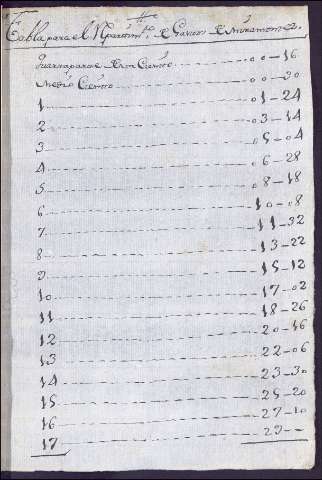 Tabla para el Rpartimto. de de Miramontes.
Quarta parte de un Ciento 00-16
Medio Ciento 00-30
1 01-24
2 03-14
3 05-04
4 06-28
5 08-18
6 10-08
7 11-32
8 13-22
9 15-12
10 17-02
11 18-26
12 20-16
13 22-06
14 23-30
15 25-20
16 27-10
17 29--